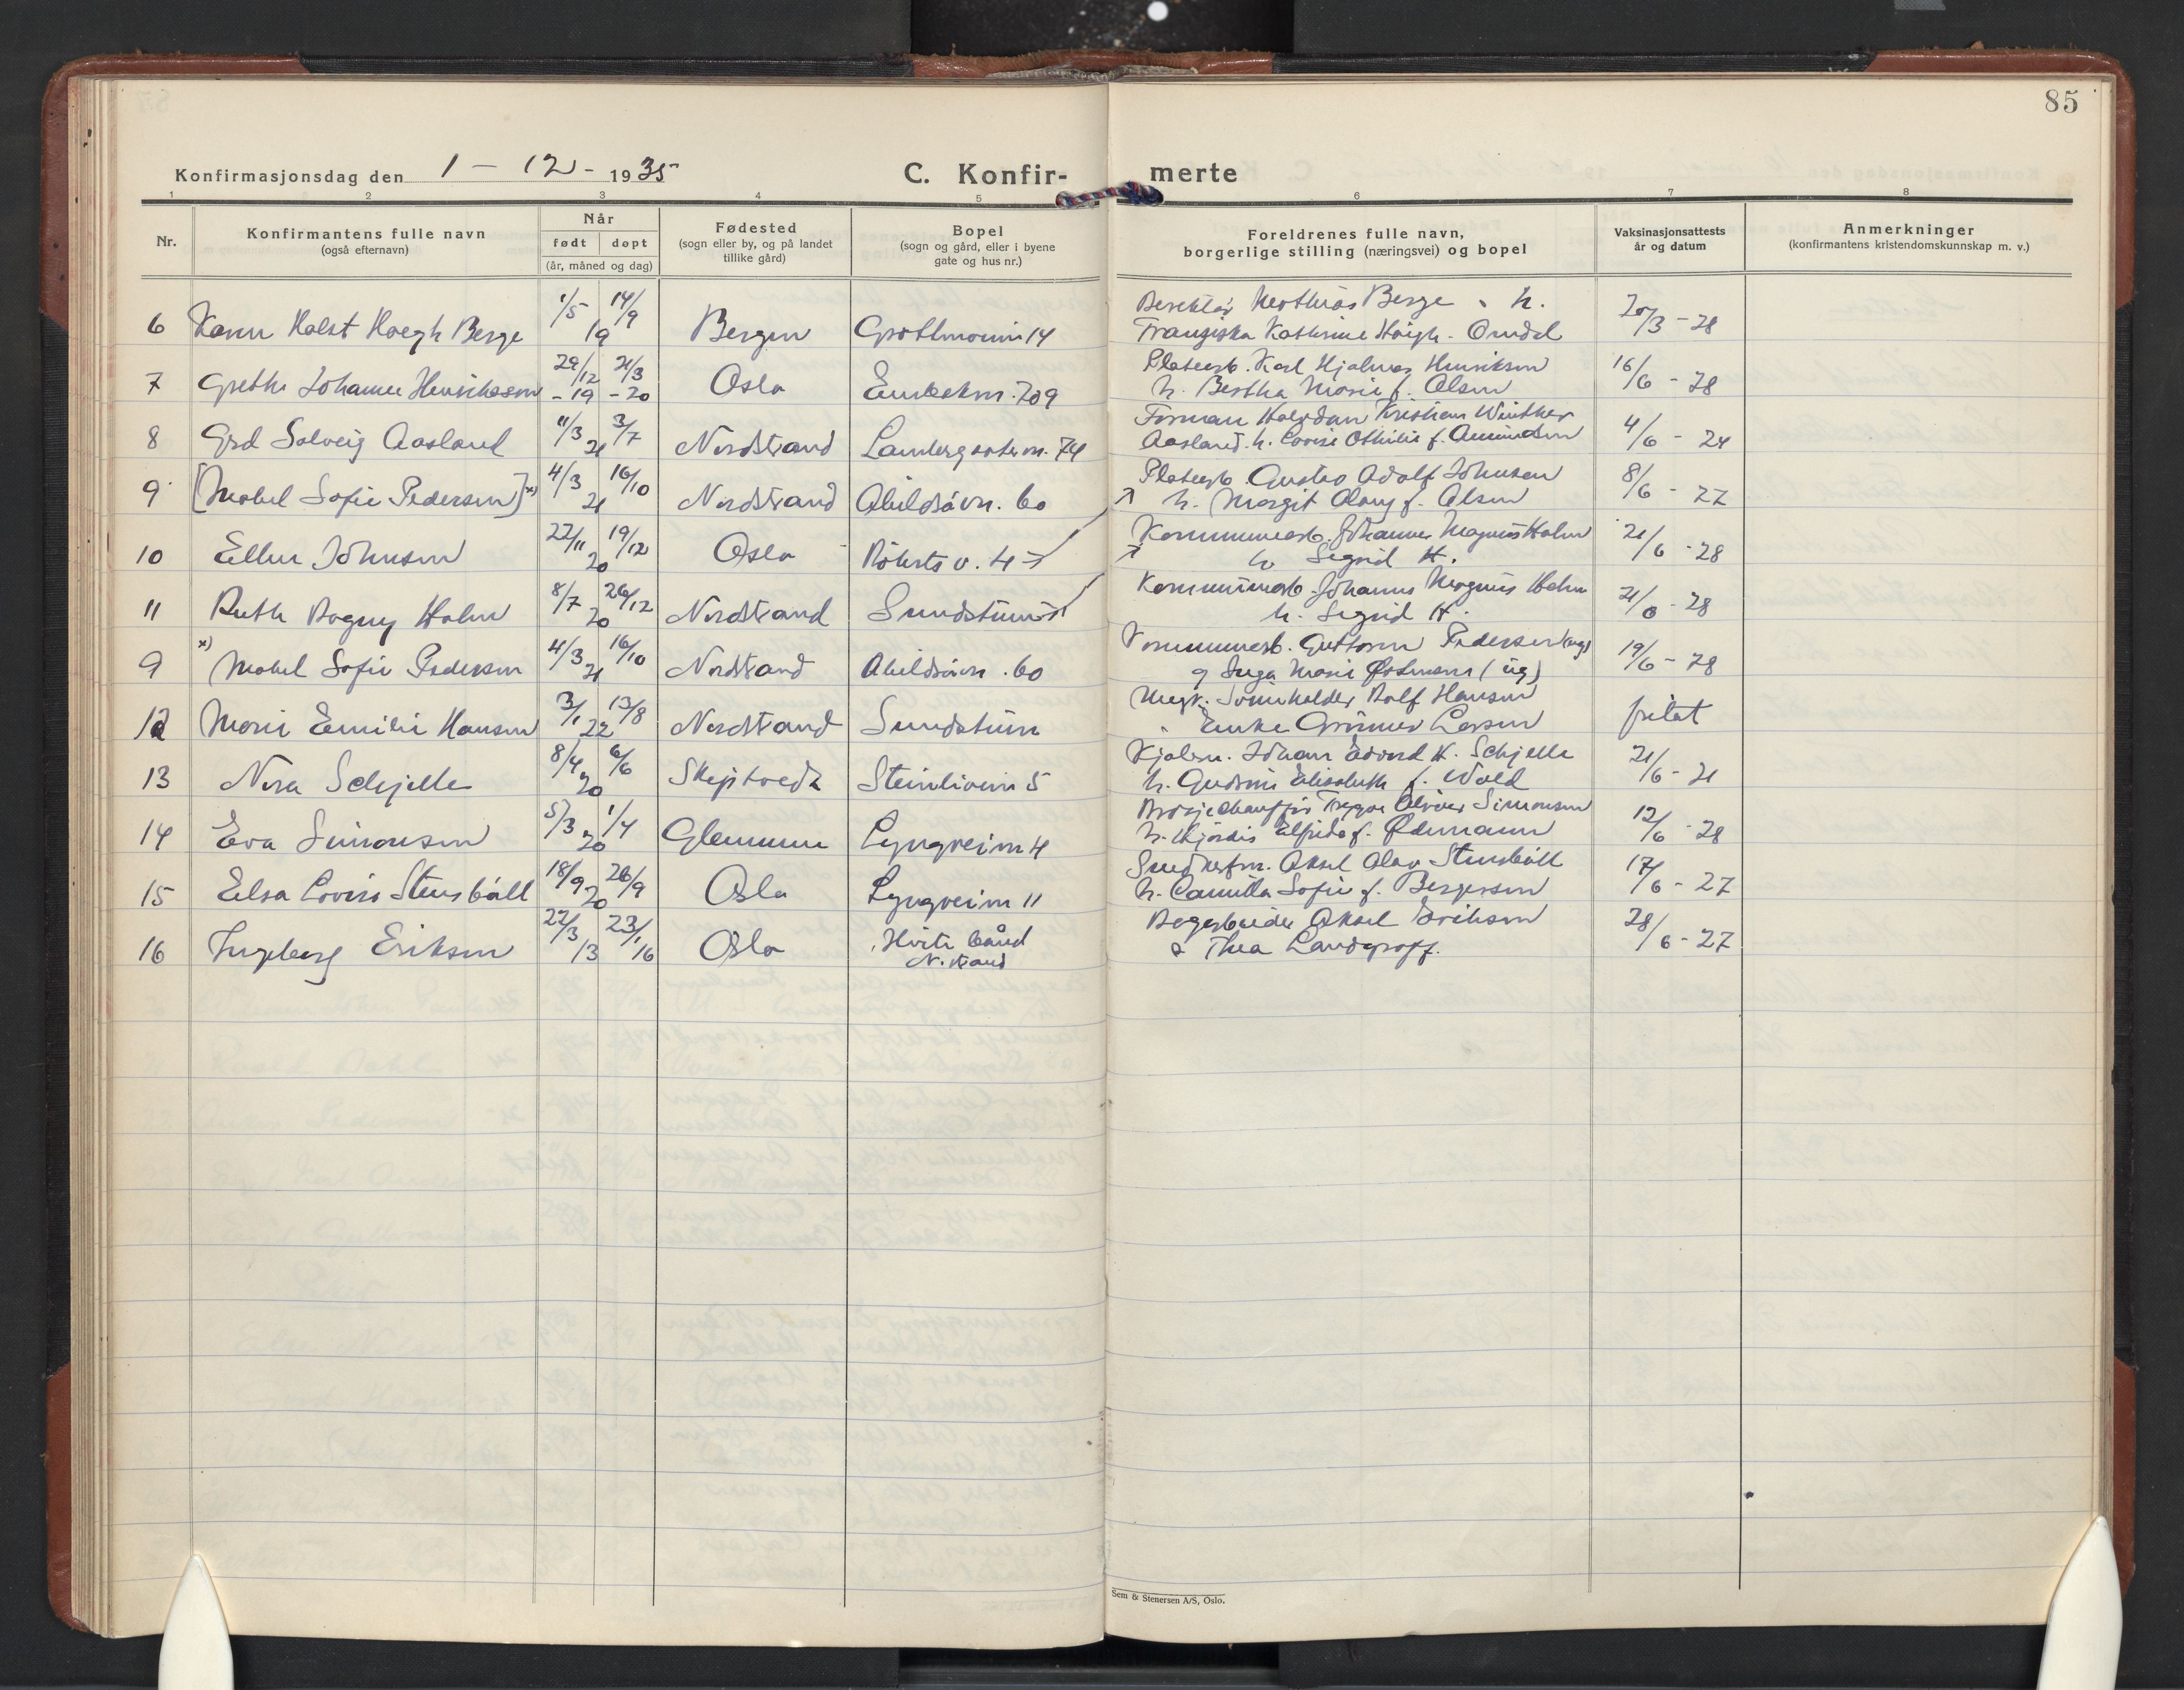 85
Konfirmasjonsdag den 1 - 12 - 1935
C. Konfir-
merte
1 2 3 4 5 6 7 8
Nr.
Konfirmantens fulle navn
(også efternavn)
Når
født døpt
(år, måned og dag)
Fødested
(sogn eller by, og på landet
tillike gård)
Bopel
(sogn og gård, eller i byene
gate og hus nr.)
Foreldrenes fulle navn,
borgerlige stilling (næringsvei) og bopel
Vaksinasjonsattests
år og datum
Anmerkninger
(konfirmantens kristendomskunnskap m. v.)
6 Karin Holst Hoegh Berge 1/5 14/9 19 Bergen 14
Mathias Berge h.
Franziska Kathrine Høigh-Omdal
20/3 - 28
7 Grethe Johanne Henriksen 29/12 - 19 21/3 - 20 Oslo Enebakkvn. 209
Platearb. Karl Hjalmar Henriksen
h. Bertha Marie f. Olsen
16/6 - 28
8 Gerd Solveig Aasland 11/3 3/7 21 Nordstrand Lambergseterv. 74
Formann Halfdan Kristian Winther
Aasland. h. Lovise Othilie f. Amundsen
4/6 - 24
9 [Mabel Sofie Pedersen] x) 4/3 16/10 21 Nordstrand Abildsøvn. 60
Platearb. Gustav Adolf Johnsen
h. Margit Olaug f. Olsen
8/6 - 27
10 Ellen Johnsen 22/11 19/12 20 Oslo v. 47
Kommunearb. Johannes Magnus Holm
h. Sigrid H.
21/6 - 28
11 Ruth Dagny Holm 8/7 26/12 20 Nordstrand Sundstuen
Kommunearb. Johannes Magnus Holm
h. Sigrid H.
21/6 - 28
9 x) Mabel Sofie Pedersen 4/3 16/10 21 Nordstrand Abildsøvn. 60
Kommunearb. Guttorm Pedersen (ug)
og Inga Marie Østmann (ug)
19/6 - 28
12 Marie Emilie Hansen 3/1 13/8 22 Nordstrand Sundstuen
Rolf Hansen
Enke Larsen
fritat
13 Nora Schjelle 8/4 6/6 20 Skiptvedt Steinliveien 5
Kjølem. Johan Edvard H. Schjelle
h. Gudrun Elisabeth f. Wold
21/6 - 21
14 Eva Simonsen 5/3 1/4 20 Glemmen Lyngveien 4
Drosjechauffør Trygve Oliver Simonsen
h. Hjördis Elfrida f. Ødemann
12/6 - 28
15 Elsa Lovise Stensbøll 18/9 26/9 20 Oslo Lyngveien 11
Aksel Olav Stensbøll
h. Camilla Sofie f. Bergersen
17/6 - 27
16 Ingeborg Eriksen 22/3 13 23/1 16 Oslo Hvite bånd
N.strand
Aksel Eriksen
& Thea Landgraff.
28/6 - 27
Sem & Stenersen A/S, Oslo.